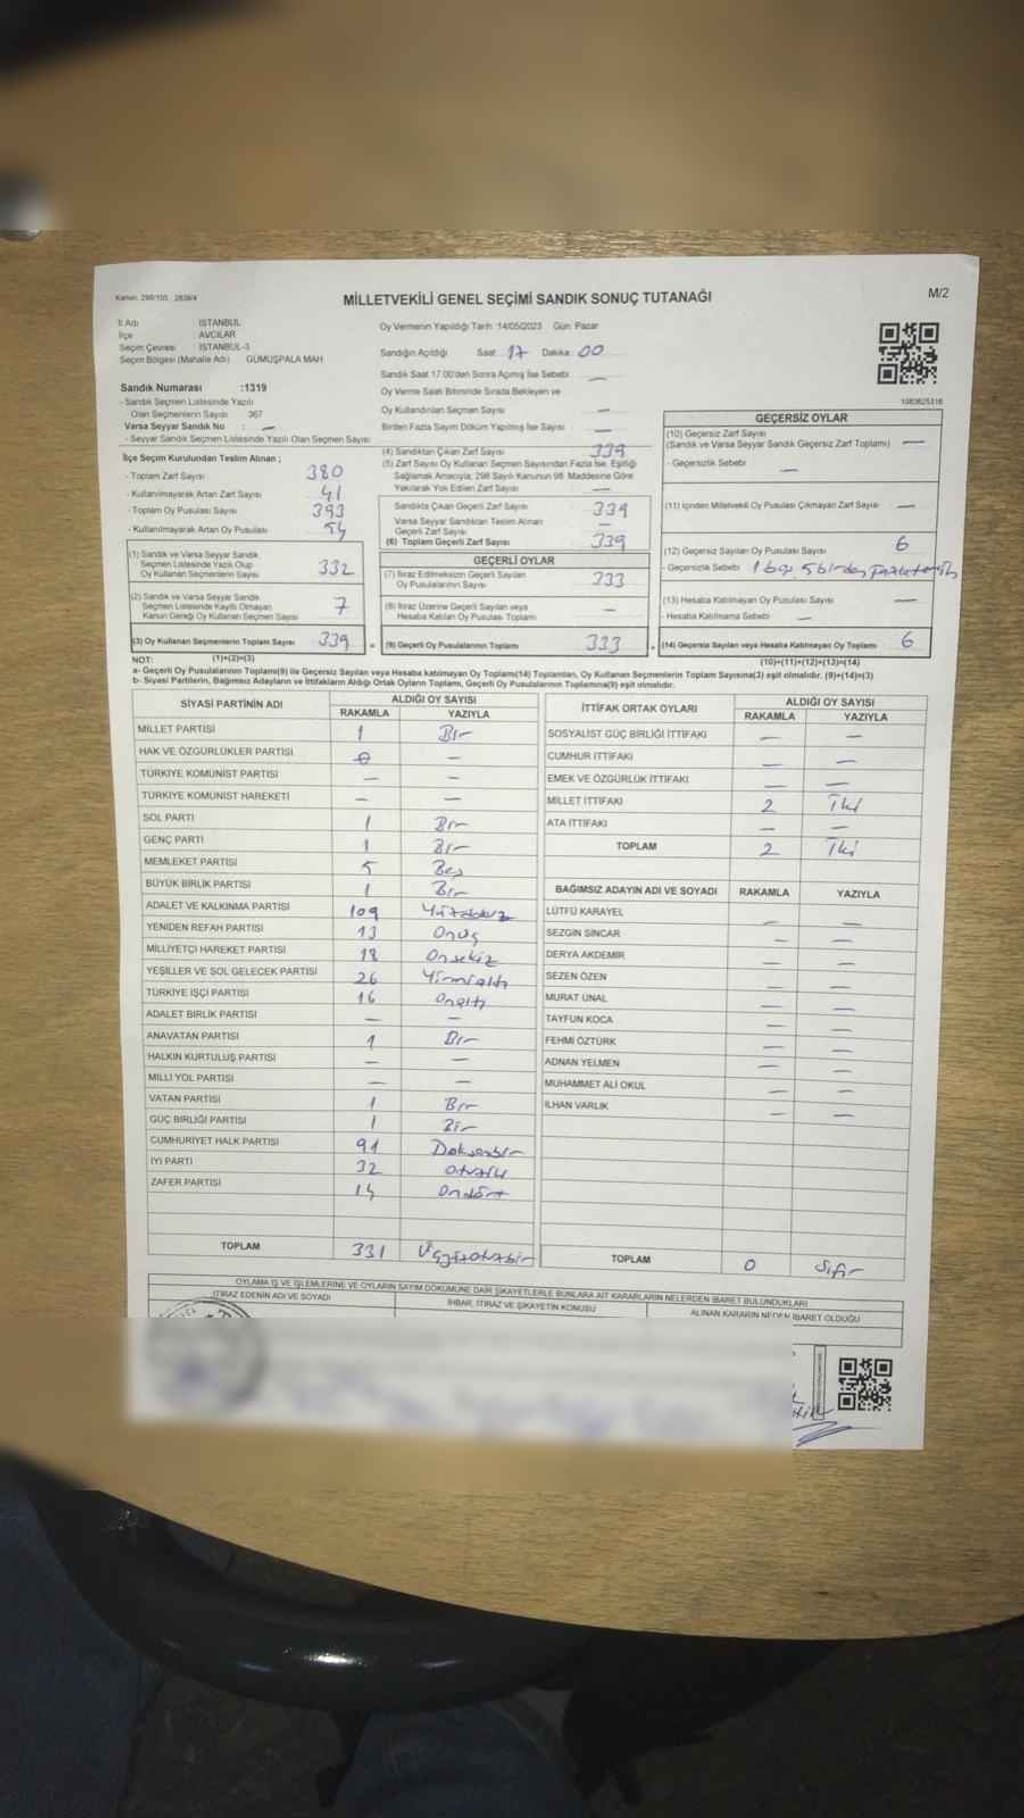 Kanun: 298/105 2839/4
MİLLETVEKİLİ GENEL SEÇİMİ SANDIK SONUÇ TUTANAĞI
M/2
İl Adı : İSTANBUL
İlçe : AVCILAR
Seçim Çevresi : İSTANBUL-3
Seçim Bölgesi (Mahalle Adı) GÜMÜŞPALA MAH
Sandık Numarası :1319
- Sandık Seçmen Listesinde Yazılı
Olan Seçmenlerin Sayısı 367
Varsa Seyyar Sandık No : —
- Seyyar Sandık Seçmen Listesinde Yazılı Olan Seçmen Sayısı
İlçe Seçim Kurulundan Teslim Alınan ;
- Toplam Zarf Sayısı 380
- Kullanılmayarak Artan Zarf Sayısı 41
- Toplam Oy Pusulası Sayısı 393
- Kullanılmayarak Artan Oy Pusulası 54
(1) Sandık ve Varsa Seyyar Sandık
Seçmen Listesinde Yazılı Olup
Oy Kullanan Seçmenlerin Sayısı 332
(2) Sandık ve Varsa Seyyar Sandık
Seçmen Listesinde Kayıtlı Olmayan
Kanun Gereği Oy Kullanan Seçmen Sayısı 7
(3) Oy Kullanan Seçmenlerin Toplam Sayısı 339
(1)+(2)=(3)
Oy Vermenin Yapıldığı Tarih :14/05/2023 Gün: Pazar
Sandığın Açıldığı Saat: 17 Dakika: 00
Sandık Saat 17.00'den Sonra Açılmış İse Sebebi —
Oy Verme Saati Bitiminde Sırada Bekleyen ve
Oy Kullandırılan Seçmen Sayısı —
Birden Fazla Sayım Döküm Yapılmış İse Sayısı —
(4) Sandıktan Çıkan Zarf Sayısı 339
(5) Zarf Sayısı Oy Kullanan Seçmen Sayısından Fazla İse, Eşitliği
Sağlamak Amacıyla; 298 Sayılı Kanunun 98. Maddesine Göre
Yakılarak Yok Edilen Zarf Sayısı —
Sandıkta Çıkan Geçerli Zarf Sayısı 339
Varsa Seyyar Sandıktan Teslim Alınan
Geçerli Zarf Sayısı —
(6) Toplam Geçerli Zarf Sayısı 339
GEÇERLİ OYLAR
(7) İtiraz Edilmeksizin Geçerli Sayılan
Oy Pusulalarının Sayısı 333
(8) İtiraz Üzerine Geçerli Sayılan veya
Hesaba Katılan Oy Pusulası Toplamı —
= (9) Geçerli Oy Pusulalarının Toplamı 333
1083625316
GEÇERSİZ OYLAR
(10) Geçersiz Zarf Sayısı
(Sandık ve Varsa Seyyar Sandık Geçersiz Zarf Toplamı) —
- Geçersizlik Sebebi —
(11) İçinden Milletvekili Oy Pusulası Çıkmayan Zarf Sayısı —
(12) Geçersiz Sayılan Oy Pusulası Sayısı 6
- Geçersizlik Sebebi 1 boş, 5 birden
(13) Hesaba Katılmayan Oy Pusulası Sayısı —
- Hesaba Katılmama Sebebi —
+ (14) Geçersiz Sayılan veya Hesaba Katılmayan Oy Toplamı 6
(10)+(11)+(12)+(13)=(14)
NOT:
a- Geçerli Oy Pusulalarının Toplamı(9) ile Geçersiz Sayılan veya Hesaba katılmayan Oy Toplamı(14) Toplamları, Oy Kullanan Seçmenlerin Toplam Sayısına(3) eşit olmalıdır. (9)+(14)=(3)
b- Siyasi Partilerin, Bağımsız Adayların ve İttifakların Aldığı Ortak Oyların Toplamı, Geçerli Oy Pusulalarının Toplamına(9) eşit olmalıdır.
SİYASİ PARTİNİN ADI ALDIĞI OY SAYISI
RAKAMLA YAZIYLA
MİLLET PARTİSİ 1 Bir
HAK VE ÖZGÜRLÜKLER PARTİSİ 0 —
TÜRKİYE KOMÜNİST PARTİSİ — —
TÜRKİYE KOMÜNİST HAREKETİ — —
SOL PARTİ 1 Bir
GENÇ PARTİ 1 Bir
MEMLEKET PARTİSİ 5 Beş
BÜYÜK BİRLİK PARTİSİ 1 Bir
ADALET VE KALKINMA PARTİSİ 109 Yüzdokuz
YENİDEN REFAH PARTİSİ 13 Onüç
MİLLİYETÇİ HAREKET PARTİSİ 18 Onsekiz
YEŞİLLER VE SOL GELECEK PARTİSİ 26 Yirmialtı
TÜRKİYE İŞÇİ PARTİSİ 16 Onaltı
ADALET BİRLİK PARTİSİ — —
ANAVATAN PARTİSİ 1 Bir
HALKIN KURTULUŞ PARTİSİ — —
MİLLİ YOL PARTİSİ — —
VATAN PARTİSİ 1 Bir
GÜÇ BİRLİĞİ PARTİSİ 1 Bir
CUMHURİYET HALK PARTİSİ 91 Doksanbir
İYİ PARTİ 32 Otuziki
ZAFER PARTİSİ 14 Ondört
TOPLAM 331 Üçyüzotuzbir
İTTİFAK ORTAK OYLARI ALDIĞI OY SAYISI
RAKAMLA YAZIYLA
SOSYALİST GÜÇ BİRLİĞİ İTTİFAKI — —
CUMHUR İTTİFAKI — —
EMEK VE ÖZGÜRLÜK İTTİFAKI — —
MİLLET İTTİFAKI 2 İki
ATA İTTİFAKI — —
TOPLAM 2 İki
BAĞIMSIZ ADAYIN ADI VE SOYADI RAKAMLA YAZIYLA
LÜTFÜ KARAYEL — —
SEZGİN SİNCAR — —
DERYA AKDEMİR — —
SEZEN ÖZEN — —
MURAT ÜNAL — —
TAYFUN KOCA — —
FEHMİ ÖZTÜRK — —
ADNAN YELMEN — —
MUHAMMET ALİ OKUL — —
İLHAN VARLIK — —
TOPLAM 0 Sıfır
OYLAMA İŞ VE İŞLEMLERİNE VE OYLARIN SAYIM DÖKÜMÜNE DAİR ŞİKAYETLERLE BUNLARA AİT KARARLARIN NELERDEN İBARET BULUNDUKLARI
İTİRAZ EDENİN ADI VE SOYADI
İHBAR, İTİRAZ VE ŞİKAYETİN KONUSU
ALINAN KARARIN NEDEN İBARET OLDUĞU